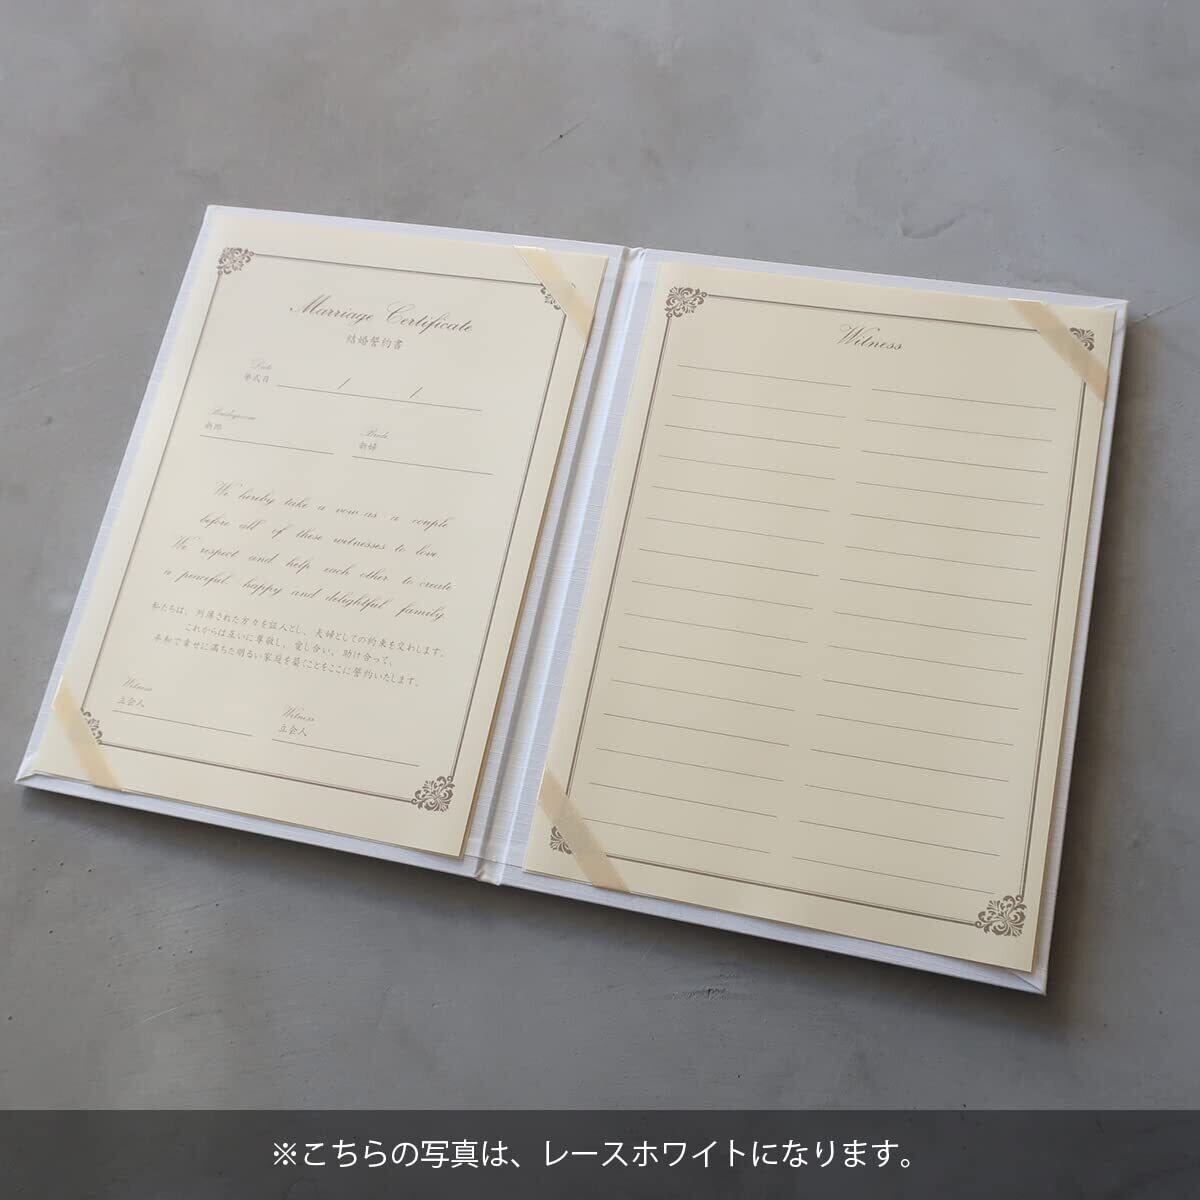 Marriage Certificate
結婚誓約書
Date
挙式日 / /
Bridegroom
新郎
Bride
新婦
We hereby take a vow as a couple
before all of these witnesses to love.
We respect and help each other to create
a peaceful, happy and delightful family.
私たちは、列席された方々を証人とし、夫婦としての約束を交わします。
これからは互いに尊敬し、愛し合い、助け合って、
平和で幸せに満ちた明るい家庭を築くことをここに誓約いたします。
Witness
立会人
Witness
立会人
Witness
※こちらの写真は、レースホワイトになります。